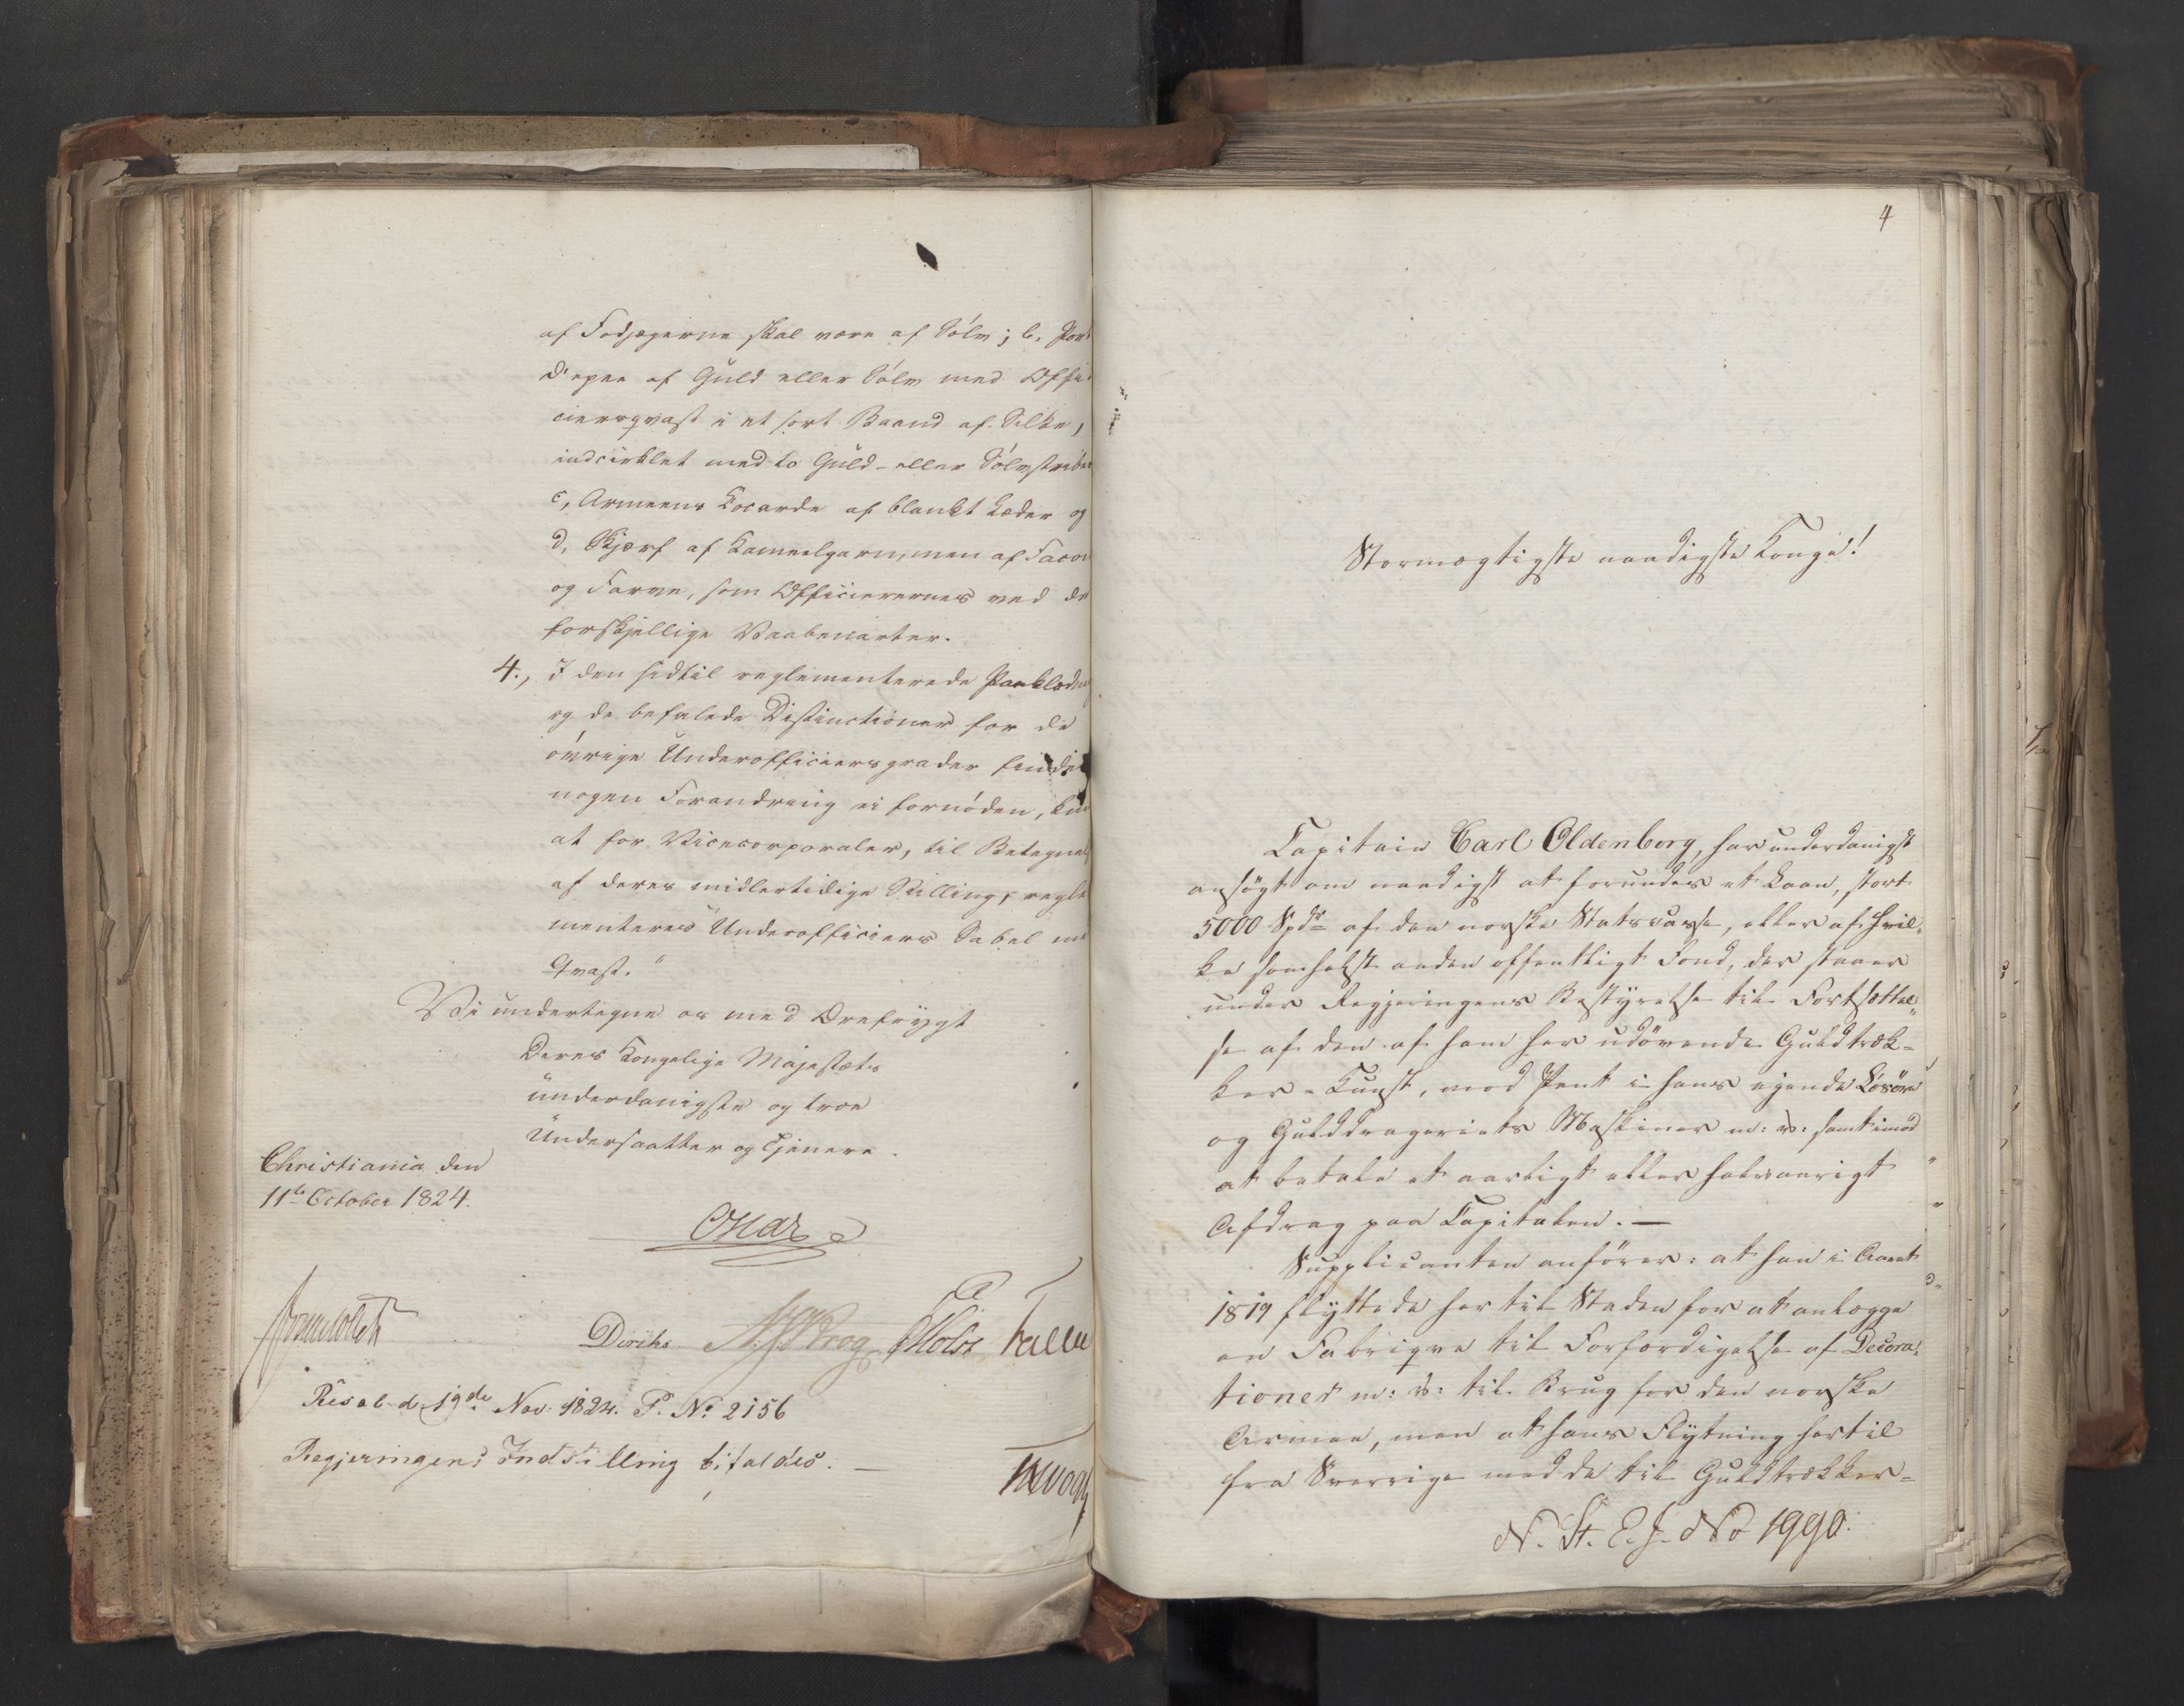 af Fodjægerne skal være af Sölv; b, Port
d'epee af Guld eller Sölv med Offi-
ciersqvast i et sort Baand af Silke,
indvirklet med to Guld- eller Sölvstriber
c, Armeens Kocarde af blankt Læder og
d, Skjærf af Kameelgarn, men af Facon
og Farve, som Officierernes ved de
forskjellige Vaabenarter.
4., I den hidtil reglementerede Paaklædning
og de befalede Distinctioner for de
övrige Underofficiersgrader findes
nogen Forandring ei fornöden, kun
at for Vicecorporaler, til Betegnelse
af deres midlertidige Stilling, regle
menteres Underofficiers Sabel med
Qvast."
Vi undertegne os med Ærefrygt
Deres Kongelige Majestæts
underdanigste og troe
Undersaatter og Tjenere.
Christiania den
11te October 1824.
Diriks Krog Holst
Resol. d. 19de Nov. 1824. P. No 2156
Regjeringens Indstilling bifaldes. —
4
Stormægtigste naadigste Konge!
Capitain Carl Oldenborg, har underdanigst
ansögt om naadigst at forundes et Laan, stort
5000 Spdr af den norske Statscasse, eller af hvil-
ke somhelst anden offentligt Fond, der staaer
under Regjeringens Bestyrelse til Fortsættel-
se af den af ham her udövende Guldtræk-
ker-Kunst, mod Pant i hans eiende Lösöre
og Gulddrageriets Maskiner m: v: samt imod
at betale et aarligt eller halvaarigt
Afdrag paa Capitalen. —
Supplicanten anförer: at han i Aaret
1819 flyttede her til Staden for at anlægge
en Fabriqve til Forfærdigelse af Decora-
tioner m: v: til Brug for den norske
Armee, men at hans Flytning hertil
fra Sverrige med de til Guldtrækker-
N. St. E. J. No 1990.